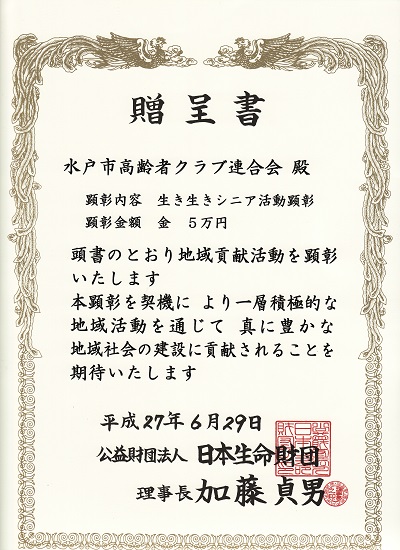 贈呈書
水戸市高齢者クラブ連合会 殿
顕彰内容 生き生きシニア活動顕彰
顕彰金額 金 5万円
頭書のとおり地域貢献活動を顕彰
いたします
本顕彰を契機に より一層積極的な
地域活動を通じて 真に豊かな
地域社会の建設に貢献されることを
期待いたします
平成27年6月29日
公益財団法人 日本生命財団
理事長 加藤貞男